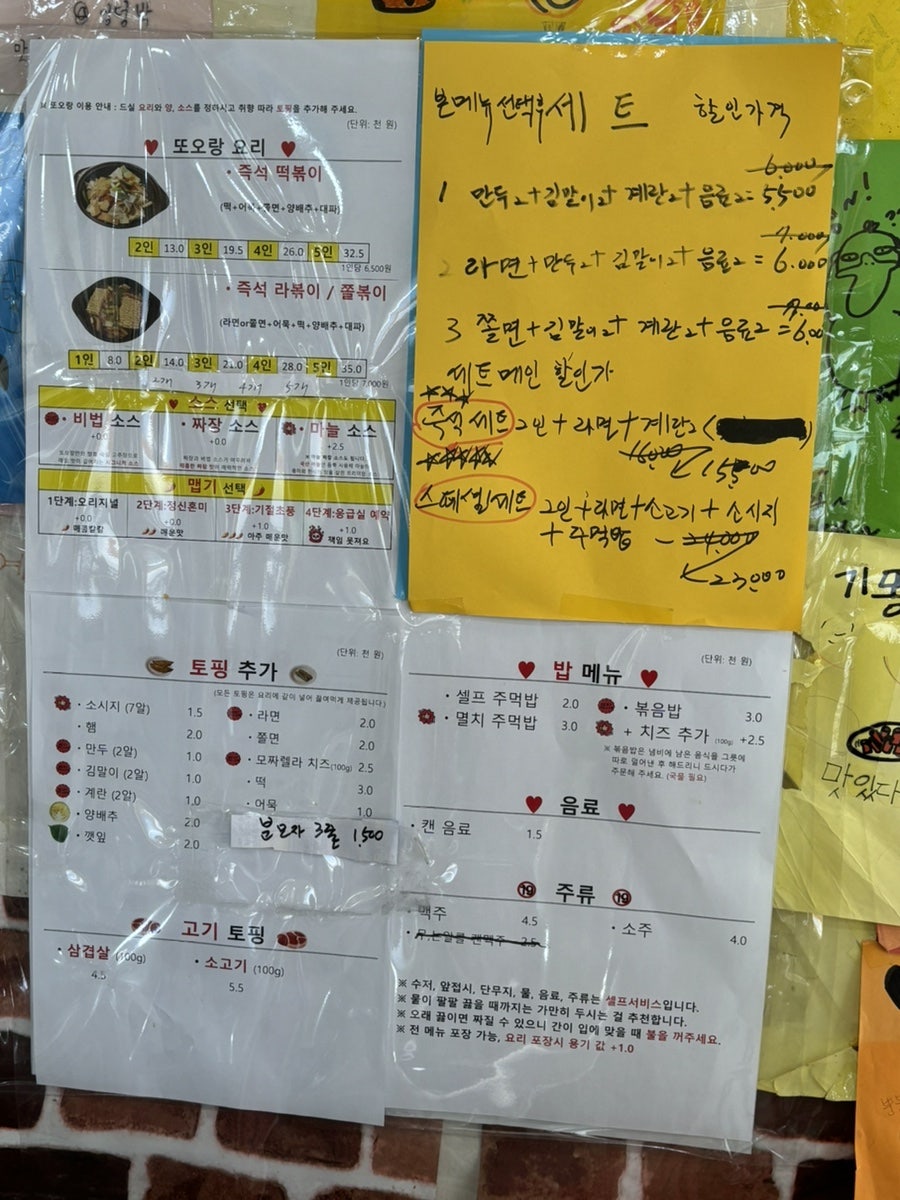 ※ 또오랑 이용 안내 : 드실 요리와 양, 소스를 정하시고 취향 따라 토핑을 추가해 주세요.
(단위: 천 원)
또오랑 요리
· 즉석 떡볶이
(떡+어묵+쫄면+양배추+대파)
2인 13.0 3인 19.5 4인 26.0 5인 32.5
1인당 6,500원
· 즉석 라볶이 / 쫄볶이
(라면or쫄면+어묵+떡+양배추+대파)
1인 8.0 2인 14.0 3인 21.0 4인 28.0 5인 35.0
2개 3개 4개 5개
1인당 7,000원
소스 선택
· 비법 소스 · 짜장 소스 · 마늘 소스
+0.0 +0.0 +2.5
맵기 선택
1단계:오리지널 2단계:정신혼미 3단계:기절초풍 4단계:응급실 예약
+0.0 +0.0 +1.0 +1.0
매콤칼칼 매운맛 아주 매운맛 책임 못져요
본메뉴 선택후 세트 할인가격
6.000
1 만두2+김말이2+계란2+음료2=5,500
7.000
2 라면+만두2+김말이2+음료2=6.000
3 쫄면+김말이2+계란2+음료2=6.00
세트메인 할인가
즉석세트 2인+라면+계란2
16000
15,500
스페셜세트 2인+라면+소고기+소시지
+주먹밥 - 24.000
23,000
(단위: 천 원)
토핑 추가
(모든 토핑은 요리에 같이 넣어 끓여먹게 제공됩니다.)
· 소시지 (7알) 1.5
· 햄 2.0
· 만두 (2알) 1.0
· 김말이 (2알) 1.0
· 계란 (2알) 1.0
· 양배추 2.0
· 깻잎 2.0
· 라면 2.0
· 쫄면 2.0
· 모짜렐라 치즈(100g) 2.5
· 떡 3.0
· 어묵 1.0
1,500
고기 토핑
· 삼겹살 (100g) · 소고기 (100g)
4.5 5.5
(단위: 천 원)
밥 메뉴
· 셀프 주먹밥 2.0
· 멸치 주먹밥 3.0
· 볶음밥 3.0
+ 치즈 추가 (100g) +2.5
※ 볶음밥은 냄비에 남은 음식을 그릇에
따로 덜어낸 후 해드리니 드시다가
주문해 주세요. (국물 필요)
음료
· 캔 음료 1.5
19 주류 19
· 맥주 4.5
· 소주 4.0
· 무알콜 캔맥주 3.5
※ 수저, 앞접시, 단무지, 물, 음료, 주류는 셀프서비스입니다.
※ 물이 팔팔 끓을 때까지는 가만히 두시는 걸 추천합니다.
※ 오래 끓이면 짜질 수 있으니 간이 입에 맞을 때 불을 꺼주세요.
※ 전 메뉴 포장 가능, 요리 포장시 용기 값 +1.0
맛있다